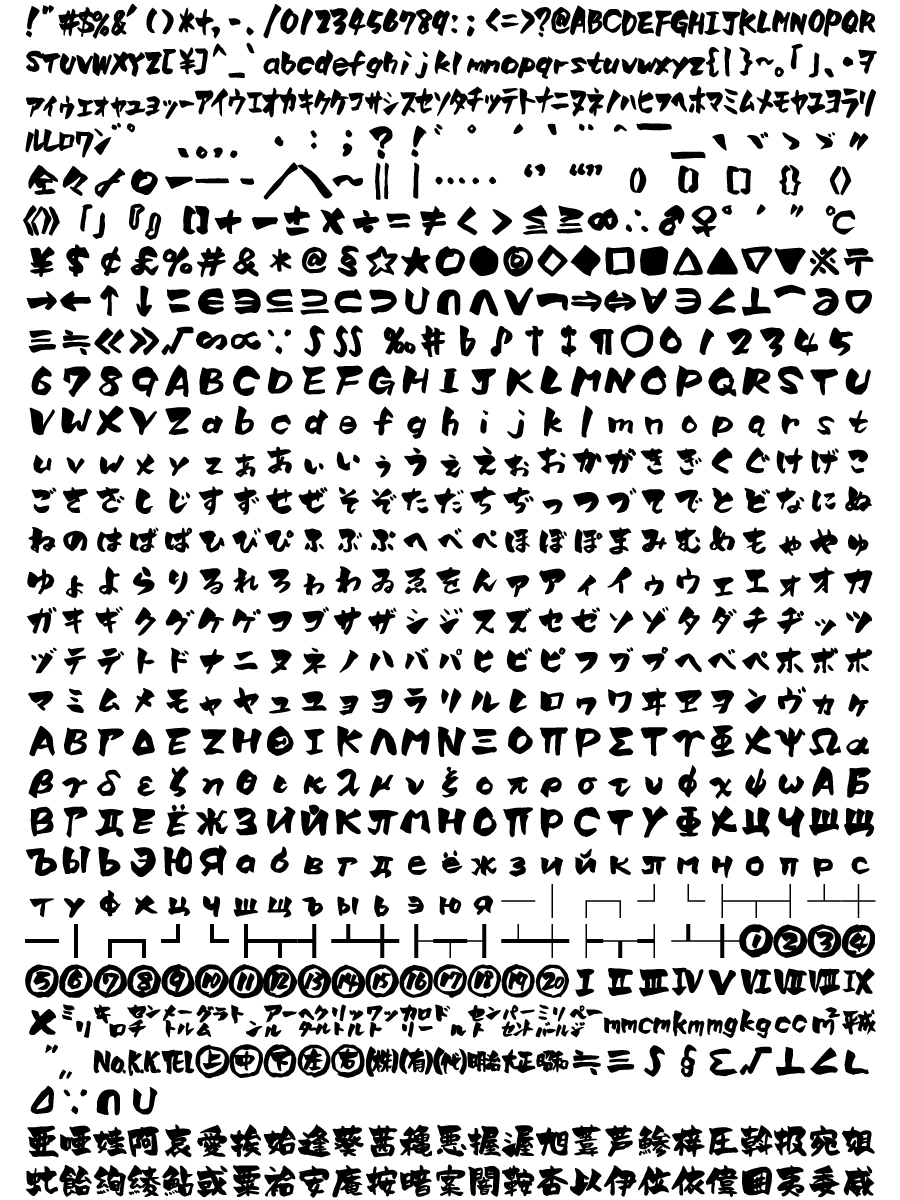 !"#$%&'()*+,-./0123456789:;<=>?@ABCDEFGHIJKLMNOPQR
STUVWXYZ[¥]^_`abcdefghijklmnopqrstuvwxyz{|}~。「」、・ヲ
ァィゥェォャュョッーアイウエオカキクケコサシスセソタチッテトナニヌネノハヒフヘホマミムメモヤユヨラリ
ルレロワン゛゜ 、。,.・:;?!゛゜´`¨^‾_ヽヾゝゞ〃
仝々〆〇ー―‐/\~‖|…‥‘’“”()〔〕[]{}〈〉
《》「」『』【】+−±×÷=≠<>≦≧∞∴♂♀°′″℃
¥$¢£%#&*@§☆★○●◎◇◆□■△▲▽▼※〒
→←↑↓〓∈∋⊆⊇⊂⊃∪∩∧∨¬⇒⇔∀∃∠⊥⌒∂▽
≡≒≪≫√∽∝∵∫∬‰♯♭♪†‡¶◯012345
6789ABCDEFGHIJKLMNOPQRSTU
VWXYZabcdefghijklmnopqrst
uvwxyzぁあぃいぅうぇえぉおかがきぎくぐけげこ
ごさざしじすずせぜそぞただちぢっつづてでとどなにぬ
ねのはばぱひびぴふぶぷへべぺほぼぽまみむめもゃやゅ
ゆょよらりるれろゎわゐゑをんァアィイゥウェエォオカ
ガキギクグケゲコゴサザシジスズセゼソゾタダチヂッツ
ヅテデトドナニヌネノハバパヒビピフブプヘベペホボポ
マミムメモャヤュユョヨラリルレロヮワヰヱヲンヴヵヶ
ΑΒΓΔΕΖΗΘΙΚΛΜΝΞΟΠΡΣΤΥΦΧΨΩα
βγδεζηθικλμνξοπρστυφχψωАБ
ВГДЕЁЖЗИЙКЛМНОПРСТУФХЦЧШЩ
ЪЫЬЭЮЯабвгдеёжзийклмнопрс
туфхцчшщъыьэюя─│┌┐┘└├┬┤┴┼
━┃┏┓┛┗┣┳┫┻╋┠┯┨┷┿┝┰┥┸╂①②③④
⑤⑥⑦⑧⑨⑩⑪⑫⑬⑭⑮⑯⑰⑱⑲⑳ⅠⅡⅢⅣⅤⅥⅦⅧⅨ
Ⅹ㍉㌔㌢㍍㌘㌧㌃㌶㍑㍗㌍㌦㌣㌫㍊㌻㎜㎝㎞㎎㎏㏄㎡㍻
〝〟№㏍℡㊤㊥㊦㊧㊨㈱㈲㈹㍾㍽㍼≒≡∫§Σ√⊥∠∟
⊿∵∩∪
亜唖娃阿哀愛挨姶逢葵茜穐悪握渥旭葦芦鯵梓圧斡扱宛姐
虻飴絢綾鮎或粟袷安庵按暗案闇鞍杏以伊位依偉囲夷委威